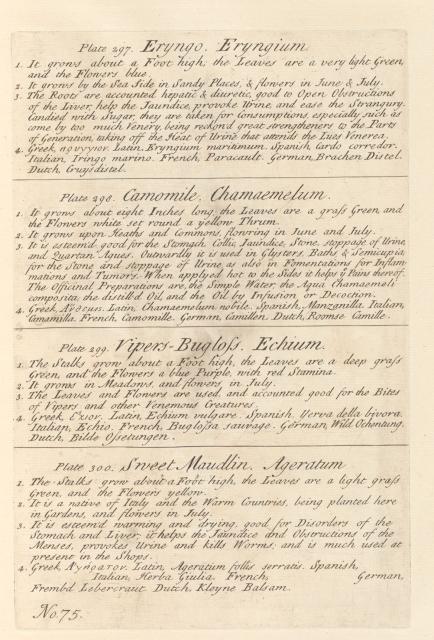 Plate 297. Eryngo. Eryngium
1. It grows about a Foot high; the Leaves are a very light Green,
and the Flowers blue.
2. It grows by the Sea Side in Sandy Places, & flowers in June & July.
3. The Roots are accounted hepatic & diuretic, good to Open Obstructions
of the Liver, help the Jaundice, provoke Urine, and ease the Strangury.
Candied with Sugar, they are taken for Consumptions, especially such as
come by too much Venery, being reckon'd great strengtheners to the Parts
of Generation, taking off the Heat of Urine that attends the Lues Venerea.
4. Greek, Latin, Eryngium maritimum. Spanish, Cardo corredor.
Italian, Iringo marino. French, Paracault. German, Brachen Distel.
Dutch, Cruysdistel.
Plate 298. Camomile. Chamaemelum.
1. It grows about eight Inches long, the Leaves are a graſs Green and
the Flowers white set round a yellow Thrum.
2. It grows upon Heaths and Commons, flowring in June and July.
3. It is esteem'd good for the Stomach, Collic, Jaundice, Stone, stoppage of Urine,
and Quartan Agues. Outwardly it is used in Glysters, Baths & Semicupia,
for the Stone and stoppage of Urine, as also in Fomentations for Inflam-
mations and Tumors. When applyed hot to the Sides it helps ye Pains thereof.
The Officinal Preparations are, the Simple Water, the Aqua Chamaemeli
composita, the distill'd Oil, and the Oil by Infusion or Decoction.
4. Greek, Latin, Chamaemelum nobile. Spanish, Manzanilla. Italian,
Camamilla. French, Camomille. German, Camillen. Dutch, Roomse Camille.
Plate 299. Vipers-Bugloſs. Echium.
1. The Stalks grow about a Foot high, the Leaves are a deep graſs
Green, and the Flowers a blue Purple, with red Stamina.
2. It grows in Meadows, and flowers in July.
3. The Leaves and Flowers are used, and accounted good for the Bites
of Vipers and other Venemous Creatures.
4. Greek, Latin, Echium vulgare. Spanish, Yerva della bivora.
Italian, Echio. French, Bugloſsa sauvage. German, Wild Ochentung.
Dutch, Bilde Oſsetungen.
Plate 300. Sweet Maudlin. Ageratum
1. The Stalks grow about a Foot high, the Leaves are a light graſs
Green, and the Flowers yellow.
2. It is a native of Italy and the Warm Countries, being planted here
in Gardens, and flowers in July.
3. It is esteem'd warming and drying, good for Disorders of the
Stomach and Liver; it helps the Jaundice and Obstructions of the
Menses, provokes Urine and kills Worms; and is much used at
present in the Shops.
4. Greek, Latin, Ageratum foliis serratis. Spanish,
Italian, Herba Giulia. French, German,
Frembd Lebercraut. Dutch, Kleyne Balsam.
No. 75.